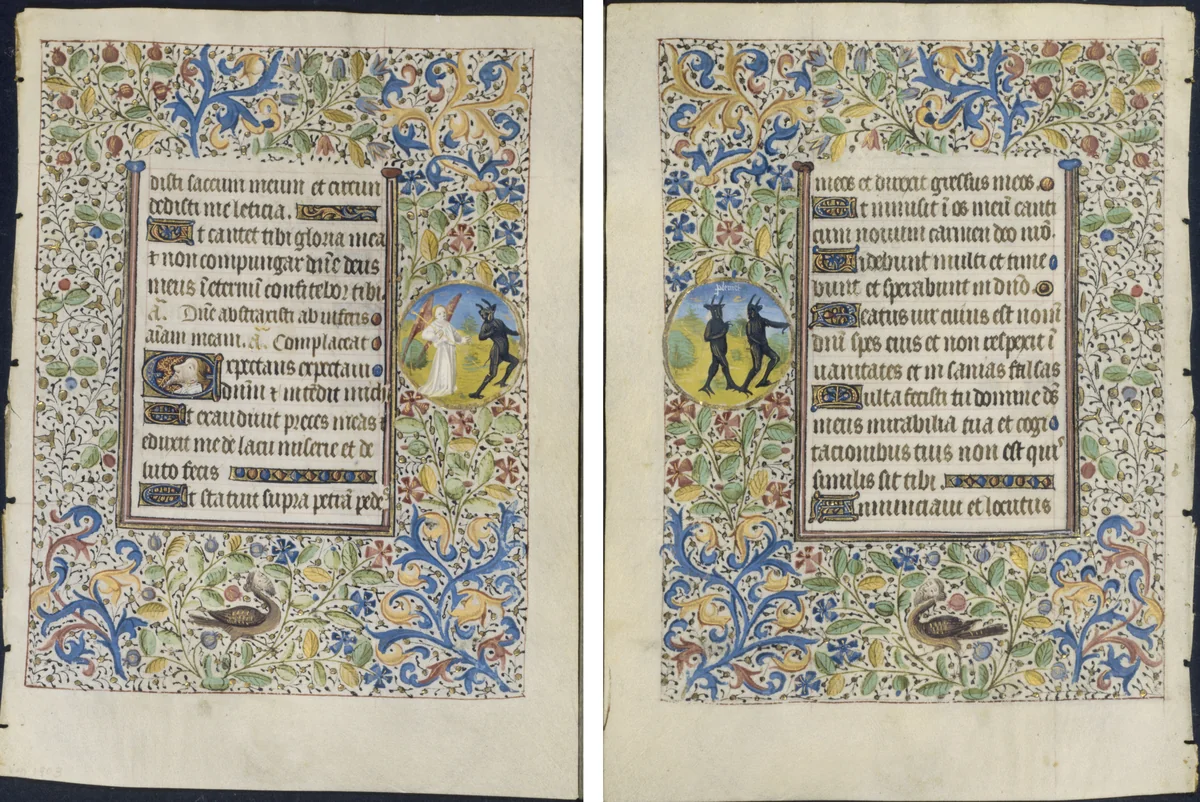 disti saccum meum et circum
dedisti me leticia.
Et cantet tibi gloria mea
⁊ non compungar dñe deus
meus ĩ eternũ confitebor tibi.
A. Dñe abstraxisti ab inferis
aĩam meam. A. Complaceat
Expectans expectaui
dñm ⁊ intẽdit michi
Et exaudiuit preces meas ⁊
eduxit me de lacu miserie et de
luto fecis
Et statuit supra petrã pedes
meos et direxit gressus meos.
Et inmisit ĩ os meũ canti
cum nouum carmen deo nrõ.
Uidebunt multi et time
bunt et sperabunt in dñõ.
Beatus uir cuius est nomẽ
dñi spes eius et non respexit ĩ
uanitates et in sanias falsas
Multa fecisti tu domine ds̃
meus mirabilia tua et cogi
tacionibus tuis non est qui
similis sit tibi.
Annunciaui et locutus